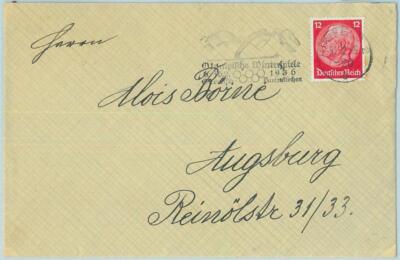 Herrn
Olympische Winterspiele
1936
Garmisch Partenkirchen
12 12
Deutsches Reich
Alois Börne
Augsburg
Reinölstr 31/33.